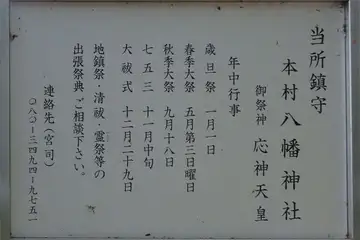 当所鎮守
本村八幡神社
御祭神 応神天皇
年中行事
歳旦祭 一月一日
春季大祭 五月第三日曜日
秋季大祭 九月十八日
七五三 十一月中旬
大祓式 十二月二十九日
地鎮祭・清祓・霊祭等の
出張祭典ご相談下さい。
連絡先(宮司)
〇八〇ー三四九四ー九七五一